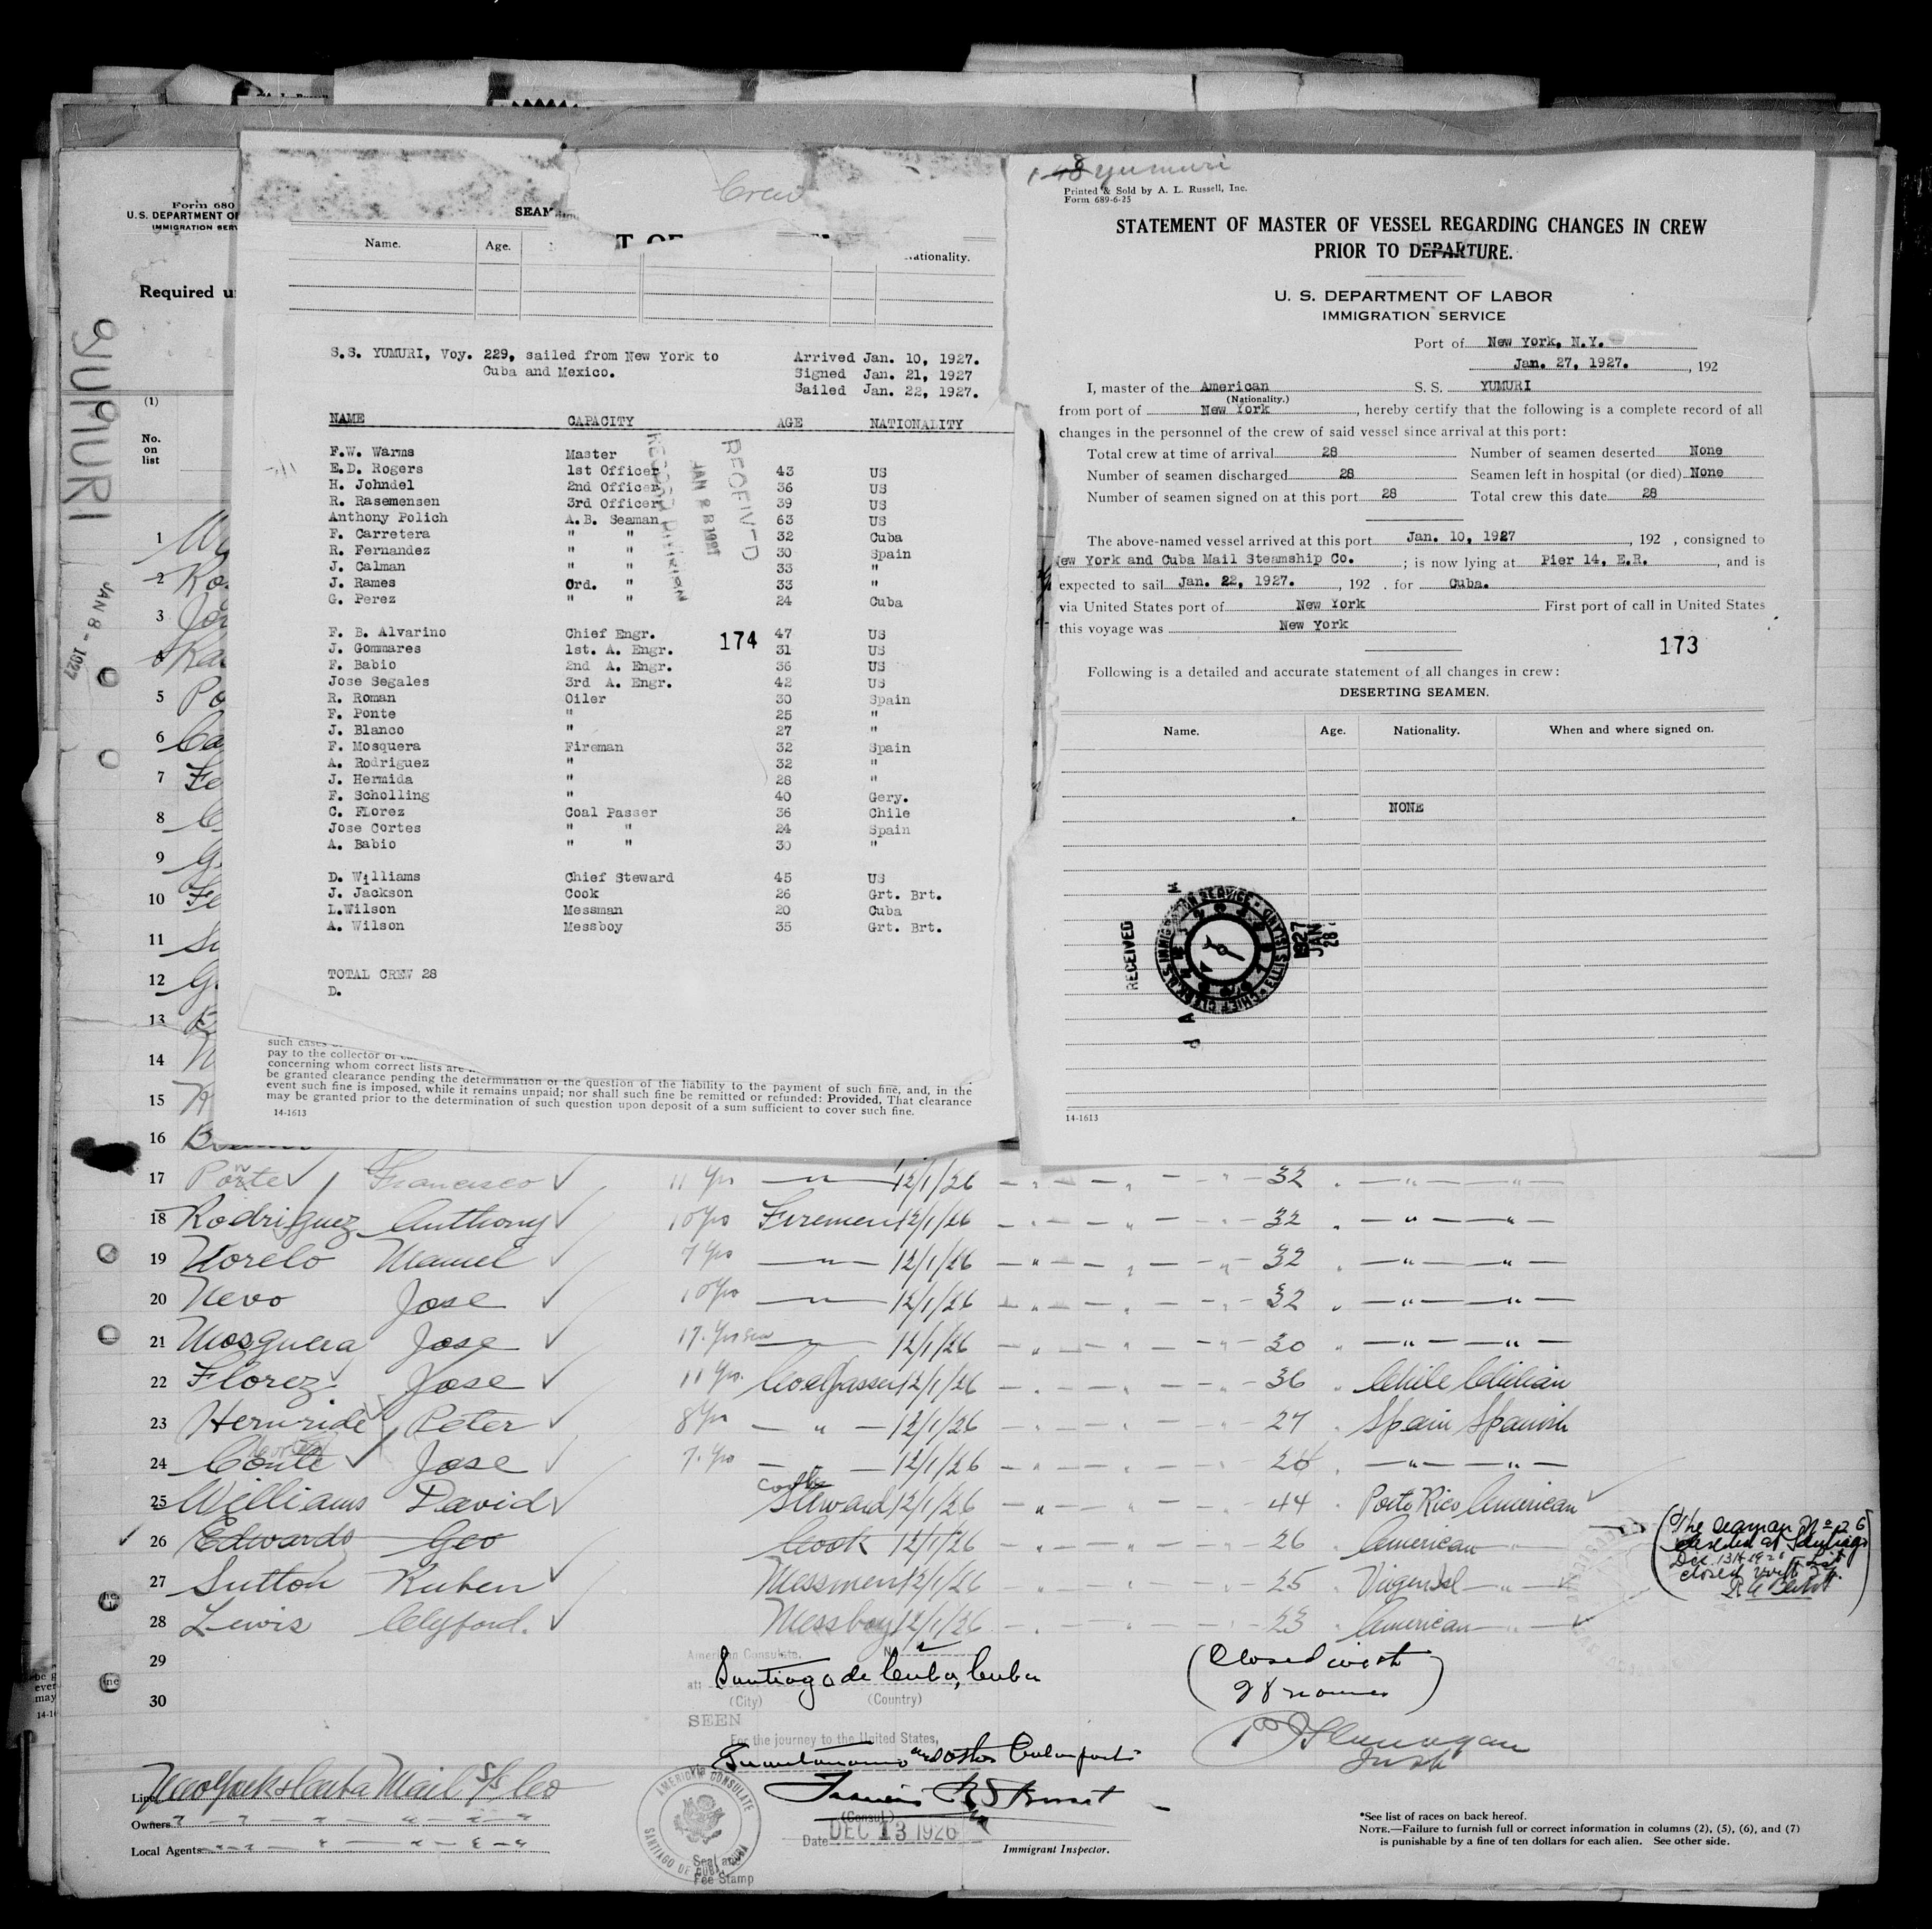 Crew
SEAM
Name. Age. T OF ationality.
S.S. YUMURI, Voy. 229, sailed from New York to Arrived Jan. 10, 1927.
Cuba and Mexico. Signed Jan. 21, 1927
Sailed Jan. 22, 1927.
NAME CAPACITY AGE NATIONALITY
F.W. Warms Master
E.D. Rogers 1st Officer 43 US
H. Johndel 2nd Officer 36 US
R. Rasemensen 3rd Officer 39 US
Anthony Polich A.B. Seaman 63 US
F. Carretera " " 32 Cuba
R. Fernandez " " 30 Spain
J. Calman " " 33 "
J. Rames Ord. " 33 "
G. Perez " " 24 Cuba
F. B. Alvarino Chief Engr. 47 US
J. Gommares 1st. A. Engr. 31 US
F. Babio 2nd A. Engr. 36 US
Jose Segales 3rd A. Engr. 42 US
R. Roman Oiler 30 Spain
F. Ponte " 25 "
J. Blanco " 27 "
F. Mosquera Fireman 32 Spain
A. Rodriguez " 32 "
J. Hermida " 28 "
F. Scholling " 40 Gery.
C. Florez Coal Passer 36 Chile
Jose Cortes " " 24 Spain
A. Babio " " 30 "
D. Williams Chief Steward 45 US
J. Jackson Cook 26 Grt. Brt.
L.Wilson Messman 20 Cuba
A. Wilson Messboy 35 Grt. Brt.
TOTAL CREW 28
D.
174
RECEIVED
RECORD DIVISION
such cases
pay to the collector of
concerning whom correct lists are
be granted clearance pending the determination of the question of the liability to the payment of such fine, and, in the
event such fine is imposed, while it remains unpaid; nor shall such fine be remitted or refunded: Provided, That clearance
may be granted prior to the determination of such question upon deposit of a sum sufficient to cover such fine.
14-1613
Yumuri
Printed & Sold by A. L. Russell, Inc.
Form 689-6-25
STATEMENT OF MASTER OF VESSEL REGARDING CHANGES IN CREW
PRIOR TO DEPARTURE.
U. S. DEPARTMENT OF LABOR
IMMIGRATION SERVICE
Port of New York, N.Y.
Jan. 27, 1927. , 192
I, master of the American S. S. YUMURI
(Nationality.)
from port of New York , hereby certify that the following is a complete record of all
changes in the personnel of the crew of said vessel since arrival at this port:
Total crew at time of arrival 28 Number of seamen deserted None
Number of seamen discharged 28 Seamen left in hospital (or died) None
Number of seamen signed on at this port 28 Total crew this date 28
The above-named vessel arrived at this port Jan. 10, 1927 , 192 , consigned to
New York and Cuba Mail Steamship Co. ; is now lying at Pier 14, E.R. , and is
expected to sail Jan. 22, 1927. , 192 . for Cuba.
via United States port of New York First port of call in United States
this voyage was New York
173
Following is a detailed and accurate statement of all changes in crew:
DESERTING SEAMEN.
Name. Age. Nationality. When and where signed on.
NONE
RECEIVED
1927
JAN
28
14-1613
Form 680
U.S. DEPARTMENT OF
IMMIGRATION SERV
Required u
YUMURI
JAN 8 - 1927
(1)
No.
on
list
1
2 Ro
3 Jo
4
5 Po
6 Ca
7 Fe
8 C
9 G
10 Fe
11
12 G
13
14
15
16 B
17 Ponte Francisco 11 yrs " 12/1/26 32 " "
18 Rodriguez Anthony 10 yrs Firemen 12/1/26 32 " "
19 Norelo Manuel 7 yrs " 12/1/26 32 " "
20 Nevo Jose 10 yrs " 12/1/26 32 " "
21 Mosquera Jose 17 yrs " 12/1/26 30 " "
22 Florez Jose 11 yrs. Coalpasser 12/1/26 36 Chile Chilian
23 Hernride Peter 8 yrs " 12/1/26 27 Spain Spanish
24 Conte Jose 7 yrs " 12/1/26 26 " "
25 Williams David Steward 12/1/26 44 Porto Rico American
26 Edwards Geo Cook 12/1/26 26 American
27 Sutton Ruben Messmen 12/1/26 25 Virgen Isl "
28 Lewis Clyford. Messboy 12/1/26 23 American "
29
30
(The seaman No 26
deserted at Santiago
Dec. 13th 1926 List
closed with
American Consulate,
at: Santiago de Cuba, Cuba
(City) (Country)
SEEN
For the journey to the United States,
Guantanamo and other Cuban ports
(Closed with
28 names)
AMERICAN CONSULATE
SANTIAGO DE CUBA, CUBA
(Consul)
Date DEC 13 1926
Seal and
Fee Stamp
Immigrant Inspector.
Line New York & Cuba Mail S/S Co
Owners " " " " " "
Local Agents " " " " " "
*See list of races on back hereof.
NOTE.—Failure to furnish full or correct information in columns (2), (5), (6), and (7)
is punishable by a fine of ten dollars for each alien. See other side.